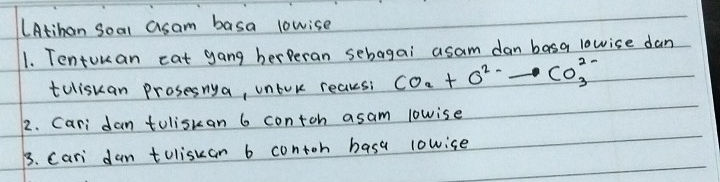 LAtihan soal asam basa lowise
1. Tentukan zat yang berperan sebagai asam dan basa lowise dan
tuliskan prosesnya, untuk reaksi CO₂ + O²⁻ → CO₃²⁻
2. Cari dan tuliskan 6 contoh asam lowise
3. Cari dan tuliskan 6 contoh basa lowise